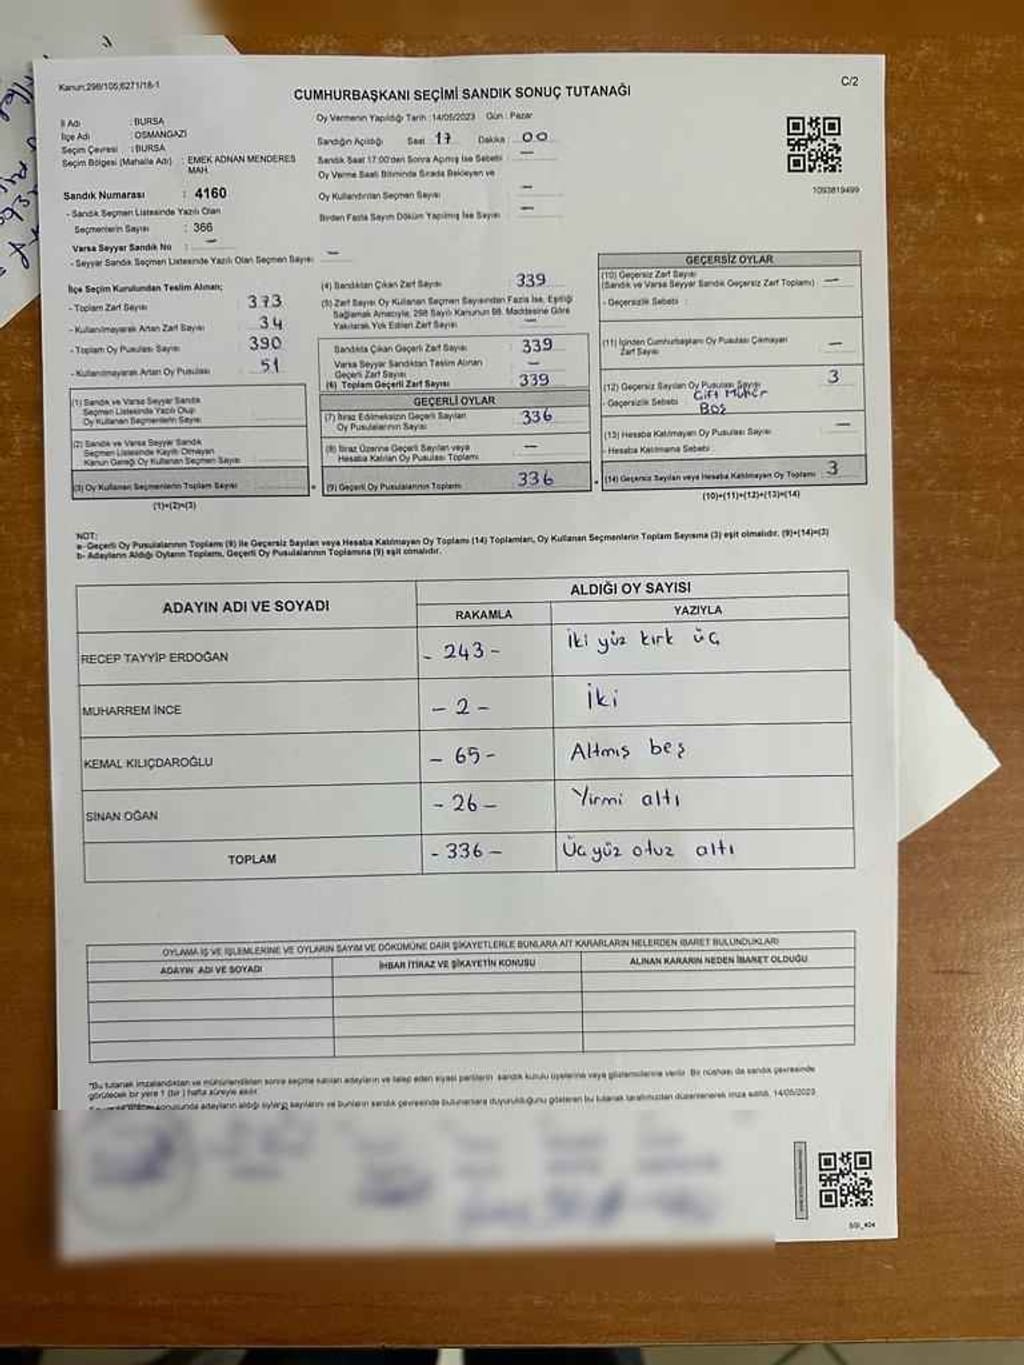 Kanun;298/105;6271/18-1
C/2
CUMHURBAŞKANI SEÇİMİ SANDIK SONUÇ TUTANAĞI
İl Adı : BURSA
İlçe Adı : OSMANGAZİ
Seçim Çevresi : BURSA
Seçim Bölgesi (Mahalle Adı) : EMEK ADNAN MENDERES MAH.
Sandık Numarası : 4160
- Sandık Seçmen Listesinde Yazılı Olan
Seçmenlerin Sayısı : 366
Varsa Seyyar Sandık No : —
- Seyyar Sandık Seçmen Listesinde Yazılı Olan Seçmen Sayısı: —
Oy Vermenin Yapıldığı Tarih :14/05/2023 Gün : Pazar
Sandığın Açıldığı Saat 17 Dakika 00
Sandık Saat 17:00'den Sonra Açmış İse Sebebi —
Oy Verme Saati Bitiminde Sırada Bekleyen ve
Oy Kullandırılan Seçmen Sayısı —
Birden Fazla Sayım Döküm Yapılmış İse Sayısı —
1093819499
İlçe Seçim Kurulundan Teslim Alınan;
- Toplam Zarf Sayısı 373
- Kullanılmayarak Artan Zarf Sayısı 34
- Toplam Oy Pusulası Sayısı 390
- Kullanılmayarak Artan Oy Pusulası 51
(1) Sandık ve Varsa Seyyar Sandık
Seçmen Listesinde Yazılı Olup
Oy Kullanan Seçmenlerin Sayısı
(2) Sandık ve Varsa Seyyar Sandık
Seçmen Listesinde Kayıtlı Olmayan
Kanun Gereği Oy Kullanan Seçmen Sayısı
(3) Oy Kullanan Seçmenlerin Toplam Sayısı
(1)+(2)=(3)
(4) Sandıktan Çıkan Zarf Sayısı 339
(5) Zarf Sayısı Oy Kullanan Seçmen Sayısından Fazla İse, Eşitliği
Sağlamak Amacıyla, 298 Sayılı Kanunun 98. Maddesine Göre
Yakılarak Yok Edilen Zarf Sayısı —
Sandıkta Çıkan Geçerli Zarf Sayısı 339
Varsa Seyyar Sandıktan Teslim Alınan
Geçerli Zarf Sayısı —
(6) Toplam Geçerli Zarf Sayısı 339
GEÇERLİ OYLAR
(7) İtiraz Edilmeksizin Geçerli Sayılan
Oy Pusulalarının Sayısı 336
(8) İtiraz Üzerine Geçerli Sayılan veya
Hesaba Katılan Oy Pusulası Toplamı —
(9) Geçerli Oy Pusulalarının Toplamı 336
GEÇERSİZ OYLAR
(10) Geçersiz Zarf Sayısı
(Sandık ve Varsa Seyyar Sandık Geçersiz Zarf Toplamı) —
- Geçersizlik Sebebi :
(11) İçinden Cumhurbaşkanı Oy Pusulası Çıkmayan
Zarf Sayısı —
(12) Geçersiz Sayılan Oy Pusulası Sayısı 3
- Geçersizlik Sebebi Çift Mühür
Boş
(13) Hesaba Katılmayan Oy Pusulası Sayısı —
- Hesaba Katılmama Sebebi
(14) Geçersiz Sayılan veya Hesaba Katılmayan Oy Toplamı 3
(10)+(11)+(12)+(13)=(14)
NOT:
a- Geçerli Oy Pusulalarının Toplamı (9) ile Geçersiz Sayılan veya Hesaba Katılmayan Oy Toplamı (14) Toplamları, Oy Kullanan Seçmenlerin Toplam Sayısına (3) eşit olmalıdır. (9)+(14)=(3)
b- Adayların Aldığı Oyların Toplamı, Geçerli Oy Pusulalarının Toplamına (9) eşit olmalıdır.
ADAYIN ADI VE SOYADI
ALDIĞI OY SAYISI
RAKAMLA YAZIYLA
RECEP TAYYİP ERDOĞAN - 243 - İki yüz kırk üç
MUHARREM İNCE - 2 - İki
KEMAL KILIÇDAROĞLU - 65 - Altmış beş
SİNAN OĞAN - 26 - Yirmi altı
TOPLAM - 336 - Üç yüz otuz altı
OYLAMA İŞ VE İŞLEMLERİNE VE OYLARIN SAYIM VE DÖKÜMÜNE DAİR ŞİKAYETLERLE BUNLARA AİT KARARLARIN NELERDEN İBARET BULUNDUKLARI
ADAYIN ADI VE SOYADI İHBAR İTİRAZ VE ŞİKAYETİN KONUSU ALINAN KARARIN NEDEN İBARET OLDUĞU
"Bu tutanak imzalandıktan ve mühürlendikten sonra seçime katılan adayların ve talep eden siyasi partilerin sandık kurulu üyelerine veya gözlemcilerine verilir. Bir nüshası da sandık çevresinde
görülecek bir yere 1 (bir) hafta süreyle asılır.
konusunda adayların aldığı oyların sayılarını ve bunların sandık çevresinde bulunanlara duyurulduğunu gösteren bu tutanak tarafımızdan düzenlenerek imza edildi. 14/05/2023